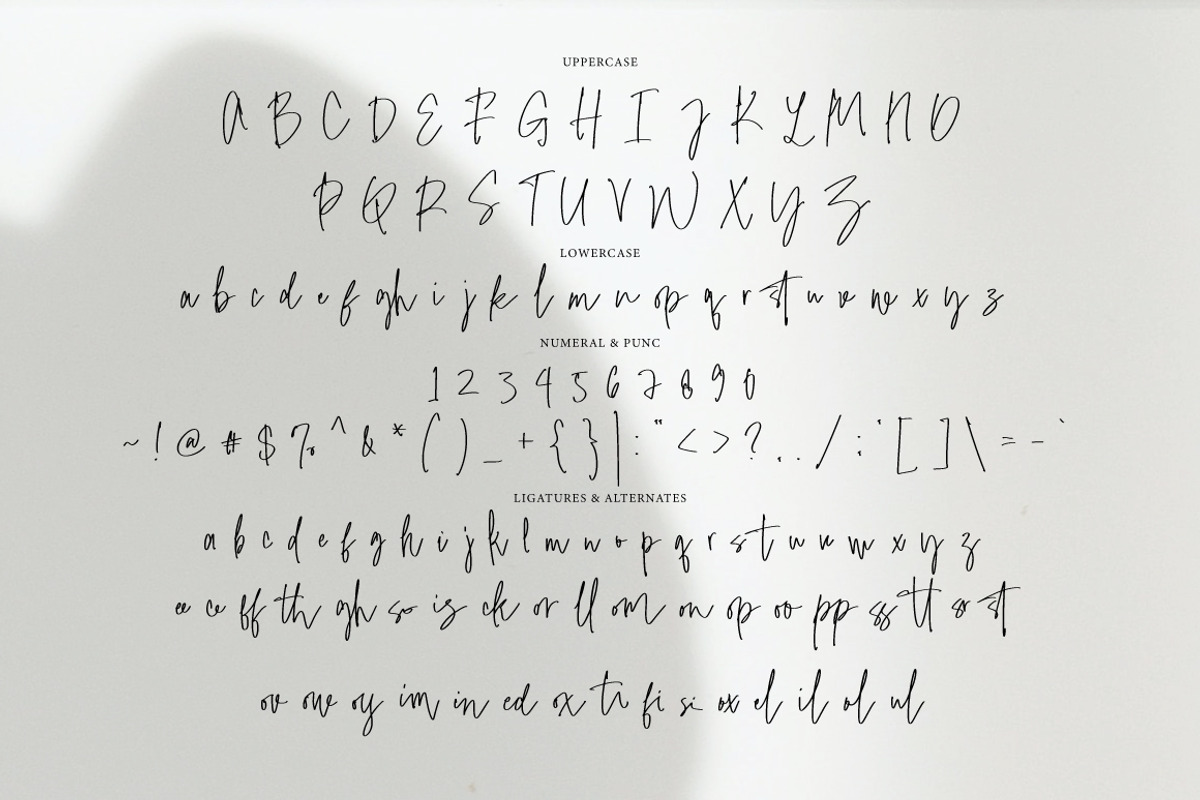 UPPERCASE
A B C D E F G H I J K L M N O
P Q R S T U V W X Y Z
LOWERCASE
a b c d e f gh i j k l m n op q r st u v w x y z
NUMERAL & PUNC
1 2 3 4 5 6 7 8 9 0
~ ! @ # $ % ^ & * ( ) _ + { } | : " < > ? , . / ; ' [ ] \ = - `
LIGATURES & ALTERNATES
a b c d e f g h i j k l m n o p q r s t u v w x y z
ee ce ff th gh so is ck or ll om on op oo pp ss tt sr st
ov ow oy im in ed ox ti fi si ox el il ol ul